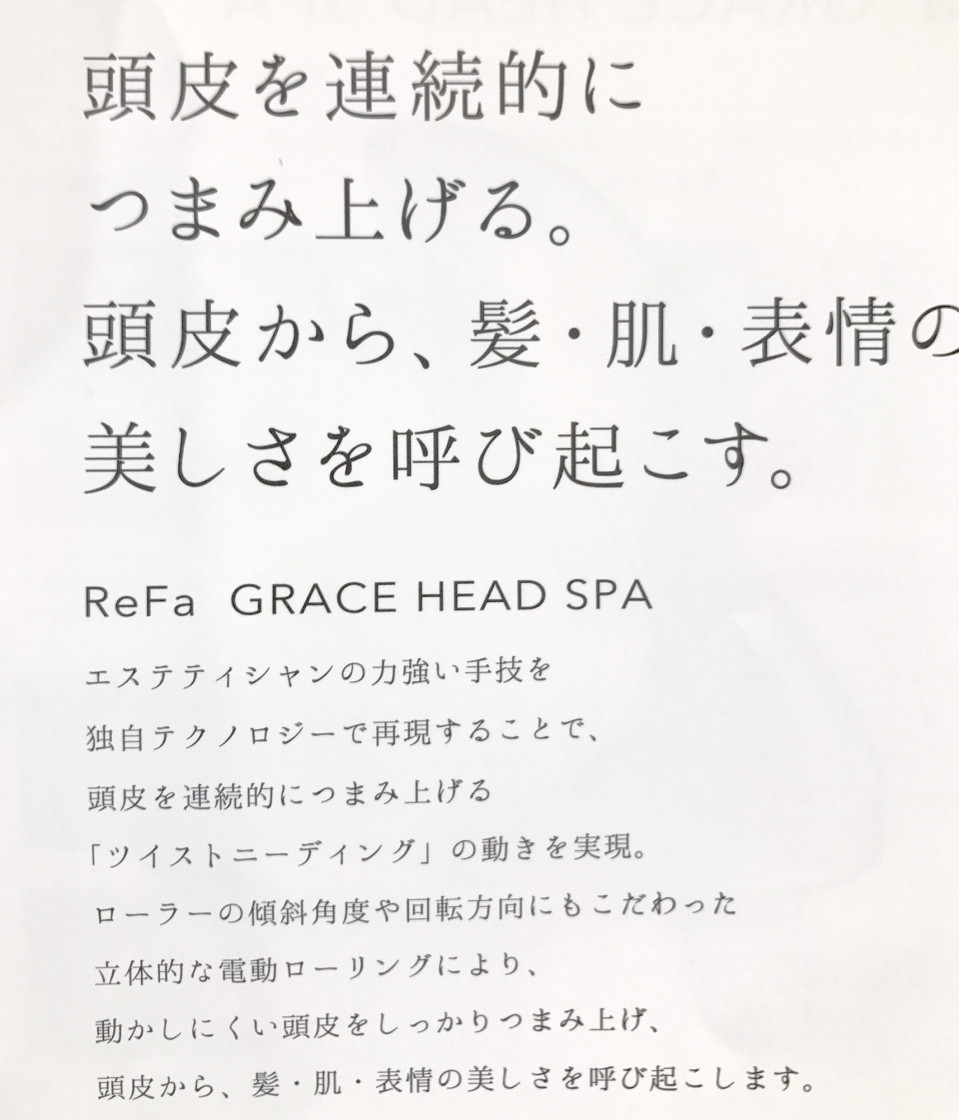 頭皮を連続的に
つまみ上げる。
頭皮から、髪・肌・表情の
美しさを呼び起こす。
ReFa GRACE HEAD SPA
エステティシャンの力強い手技を
独自テクノロジーで再現することで、
頭皮を連続的につまみ上げる
「ツイストニーディング」の動きを実現。
ローラーの傾斜角度や回転方向にもこだわった
立体的な電動ローリングにより、
動かしにくい頭皮をしっかりつまみ上げ、
頭皮から、髪・肌・表情の美しさを呼び起こします。